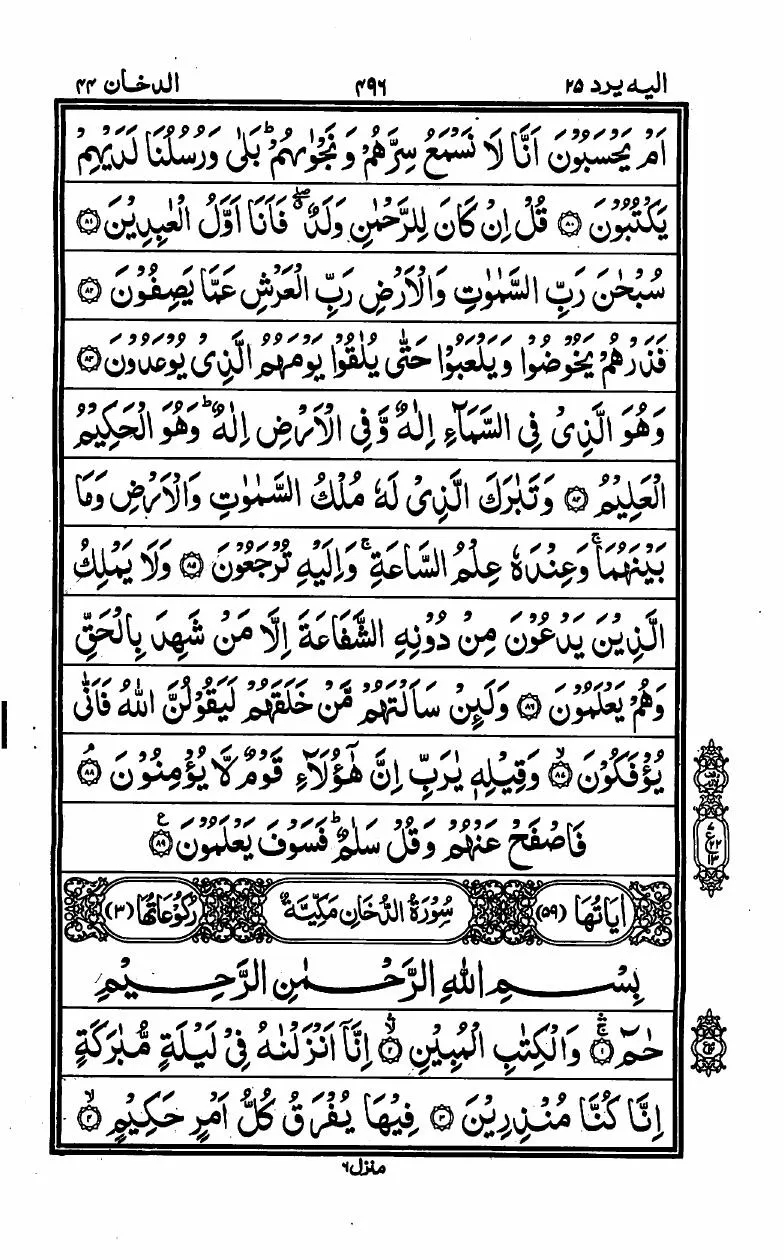 اليه يرد ٢٥ ٤٩٦ الدخان ٤٤
اَمْ يَحْسَبُوْنَ اَنَّا لَا نَسْمَعُ سِرَّهُمْ وَ نَجْوٰىهُمْ ؕ بَلٰى وَرُسُلُنَا لَدَيْهِمْ
يَكْتُبُوْنَ ﴿٨٠﴾ قُلْ اِنْ كَانَ لِلرَّحْمٰنِ وَلَدٌ ۖۗ فَاَنَا اَوَّلُ الْعٰبِدِيْنَ ﴿٨١﴾
سُبْحٰنَ رَبِّ السَّمٰوٰتِ وَالْاَرْضِ رَبِّ الْعَرْشِ عَمَّا يَصِفُوْنَ ﴿٨٢﴾
فَذَرْهُمْ يَخُوْضُوْا وَيَلْعَبُوْا حَتّٰى يُلٰقُوْا يَوْمَهُمُ الَّذِىْ يُوْعَدُوْنَ ﴿٨٣﴾
وَهُوَ الَّذِىْ فِى السَّمَآءِ اِلٰهٌ وَّفِى الْاَرْضِ اِلٰهٌ ؕ وَهُوَ الْحَكِيْمُ
الْعَلِيْمُ ﴿٨٤﴾ وَتَبٰرَكَ الَّذِىْ لَهٗ مُلْكُ السَّمٰوٰتِ وَالْاَرْضِ وَمَا
بَيْنَهُمَا ۚ وَعِنْدَهٗ عِلْمُ السَّاعَةِ ۚ وَاِلَيْهِ تُرْجَعُوْنَ ﴿٨٥﴾ وَلَا يَمْلِكُ
الَّذِيْنَ يَدْعُوْنَ مِنْ دُوْنِهِ الشَّفَاعَةَ اِلَّا مَنْ شَهِدَ بِالْحَقِّ
وَهُمْ يَعْلَمُوْنَ ﴿٨٦﴾ وَلَئِنْ سَاَلْتَهُمْ مَّنْ خَلَقَهُمْ لَيَقُوْلُنَّ اللّٰهُ فَاَنّٰى
يُؤْفَكُوْنَ ﴿٨٧﴾ وَقِيْلِهٖ يٰرَبِّ اِنَّ هٰٓؤُلَآءِ قَوْمٌ لَّا يُؤْمِنُوْنَ ﴿٨٨﴾
فَاصْفَحْ عَنْهُمْ وَقُلْ سَلٰمٌ ؕ فَسَوْفَ يَعْلَمُوْنَ ﴿٨٩﴾ ع
اٰيَاتُهَا (٥٩) سُوْرَةُ الدُّخَانِ مَكِّيَّةٌ رُكُوْعَاتُهَا (٣)
بِسْمِ اللّٰهِ الرَّحْمٰنِ الرَّحِيْمِ
حٰمٓ ﴿١﴾ وَالْكِتٰبِ الْمُبِيْنِ ﴿٢﴾ اِنَّآ اَنْزَلْنٰهُ فِىْ لَيْلَةٍ مُّبٰرَكَةٍ
اِنَّا كُنَّا مُنْذِرِيْنَ ﴿٣﴾ فِيْهَا يُفْرَقُ كُلُّ اَمْرٍ حَكِيْمٍ ﴿٤﴾
منزل ٦